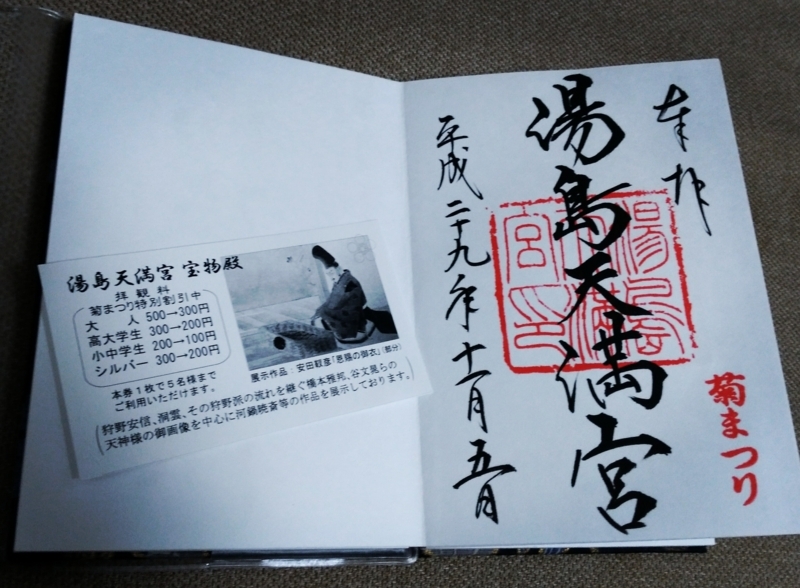 奉拝
湯島天満宮
平成二十九年十一月五日
菊まつり
湯島天満宮 宝物殿
拝観料
菊まつり特別割引中
大人 500→300円
高大学生 300→200円
小中学生 200→100円
シルバー 300→200円
本券1枚で5名様まで
ご利用いただけます。
展示作品:安田靫彦「恩賜の御衣」(部分)
(狩野安信、洞雲、その狩野派の流れを継ぐ橋本雅邦、谷文晁らの
天神様の御画像を中心に河鍋暁斎等の作品を展示しております。)